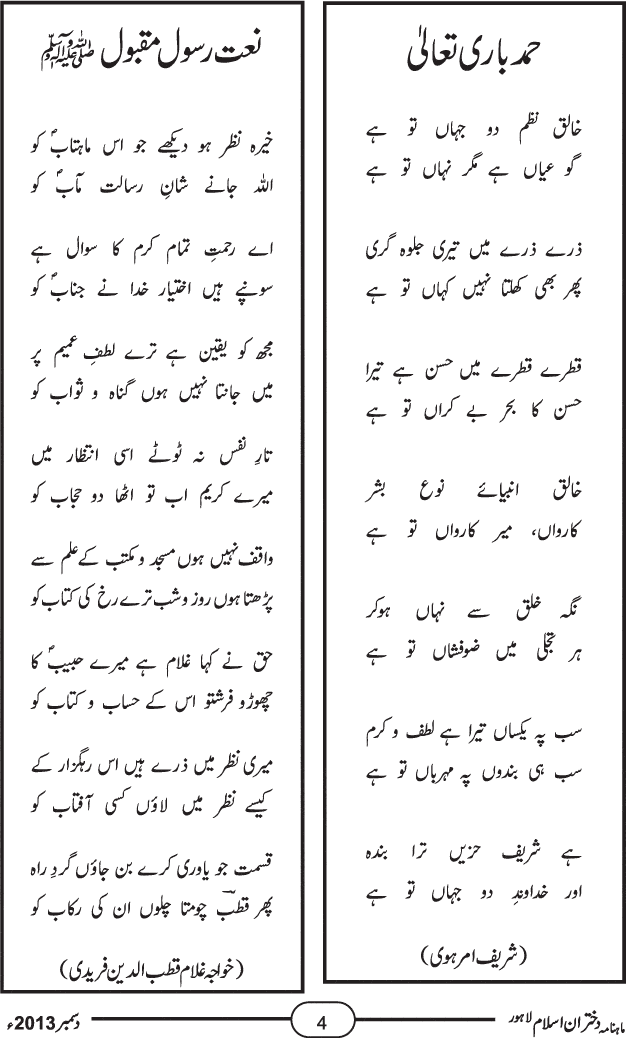 حمد باری تعالیٰ
خالق نظم دو جہاں تو ہے
گو عیاں ہے مگر نہاں تو ہے
ذرے ذرے میں تیری جلوہ گری
پھر بھی کھلتا نہیں کہاں تو ہے
قطرے قطرے میں حسن ہے تیرا
حسن کا بحر بے کراں تو ہے
خالق انبیائے نوع بشر
کارواں، میر کارواں تو ہے
نگہ خلق سے نہاں ہوکر
ہر تجلی میں ضوفشاں تو ہے
سب پہ یکساں تیرا ہے لطف و کرم
سب ہی بندوں پہ مہرباں تو ہے
ہے شریف حزیں ترا بندہ
اور خداوندِ دو جہاں تو ہے
(شریف امرہوی)
نعت رسول مقبول ﷺ
خیرہ نظر ہو دیکھے جو اس ماہتابؐ کو
اللہ جانے شانِ رسالت مآبؐ کو
اے رحمتِ تمام کرم کا سوال ہے
سونپے ہیں اختیار خدا نے جنابؐ کو
مجھ کو یقین ہے ترے لطفِ عمیم پر
میں جانتا نہیں ہوں گناہ و ثواب کو
تارِ نفس نہ ٹوٹے اسی انتظار میں
میرے کریم اب تو اٹھا دو حجاب کو
واقف نہیں ہوں مسجد و مکتب کے علم سے
پڑھتا ہوں روز و شب ترے رخ کی کتاب کو
حق نے کہا غلام ہے میرے حبیبؐ کا
چھوڑو فرشتو اس کے حساب و کتاب کو
میری نظر میں ذرے ہیں اس رہگزار کے
کیسے نظر میں لاؤں کسی آفتاب کو
قسمت جو یاوری کرے بن جاؤں گردِ راہ
پھر قطبؔ چومتا چلوں ان کی رکاب کو
(خواجہ غلام قطب الدین فریدی)
ماہنامہ دختران اسلام لاہور
4
دسمبر 2013ء